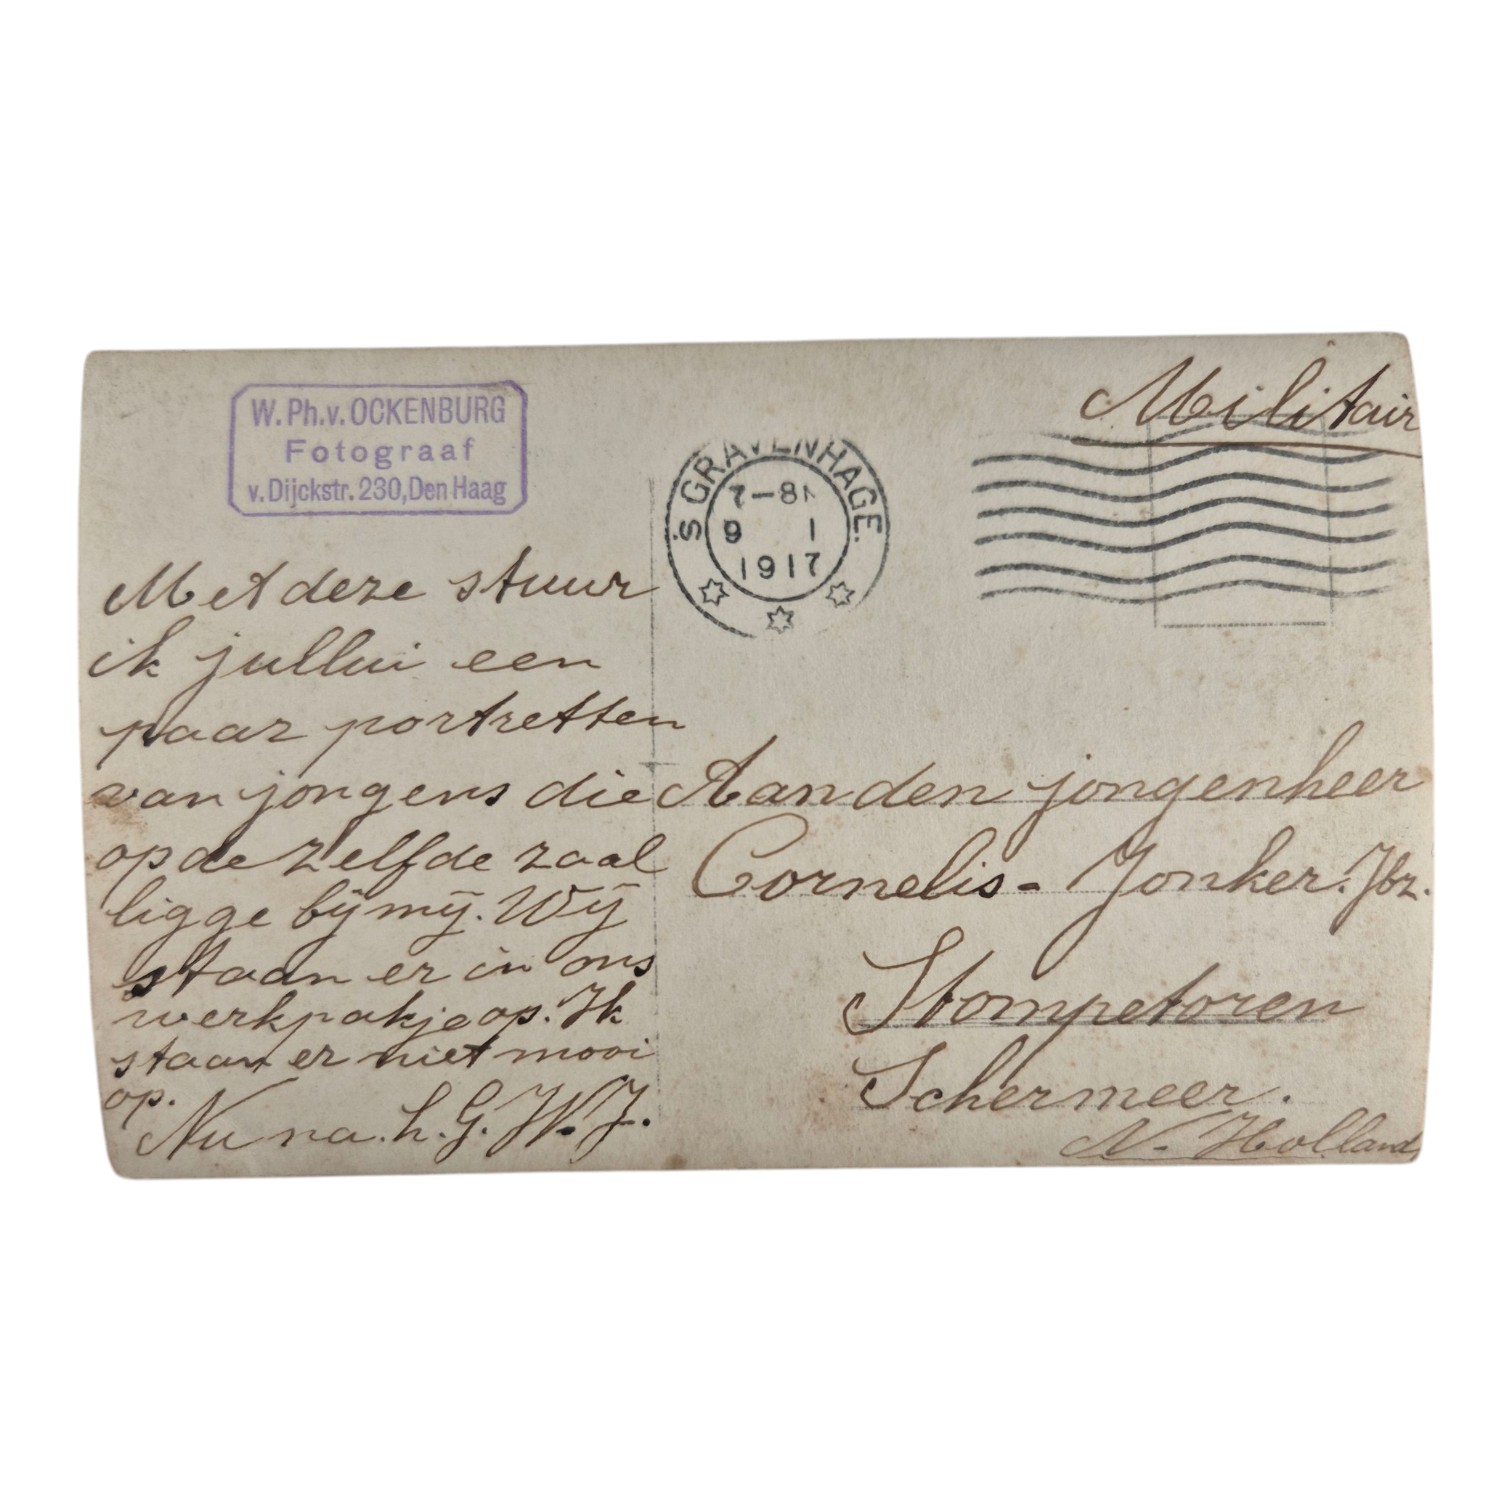 W. Ph. v. OCKENBURG
Fotograaf
v. Dijckstr. 230, Den Haag
'S GRAVENHAGE.
7-8
9 1
1917
Militair
Met deze stuur
ik jullui een
paar portretten
van jongens die
op de zelfde zaal
ligge bij mij. Wij
staan er in ons
werkpakje op. Ik
staan er niet mooi
op.
Nu na. h. G. W. J.
Aan den jongenheer
Cornelis - Jonker. Jbz.
Stompetoren
Schermeer.
N. Holland